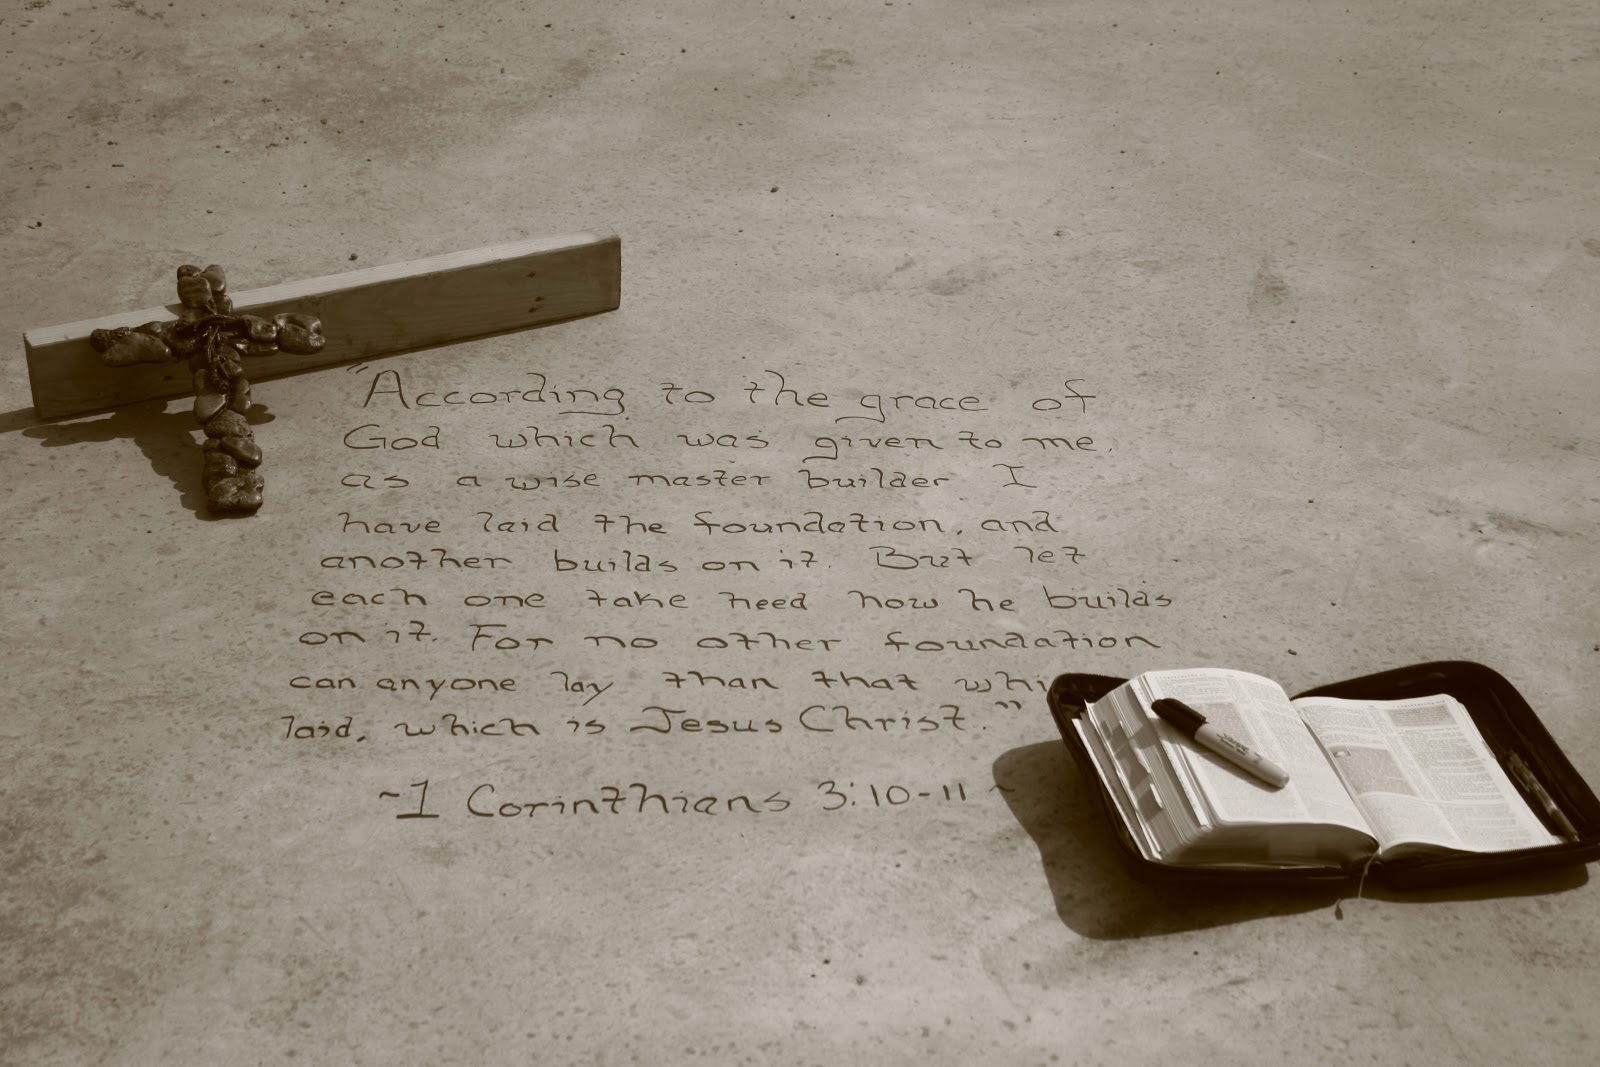 "According to the grace of
God which was given to me,
as a wise master builder I
have laid the foundation, and
another builds on it. But let
each one take heed how he builds
on it. For no other foundation
can anyone lay than that whi
laid, which is Jesus Christ."
~1 Corinthians 3:10-11~